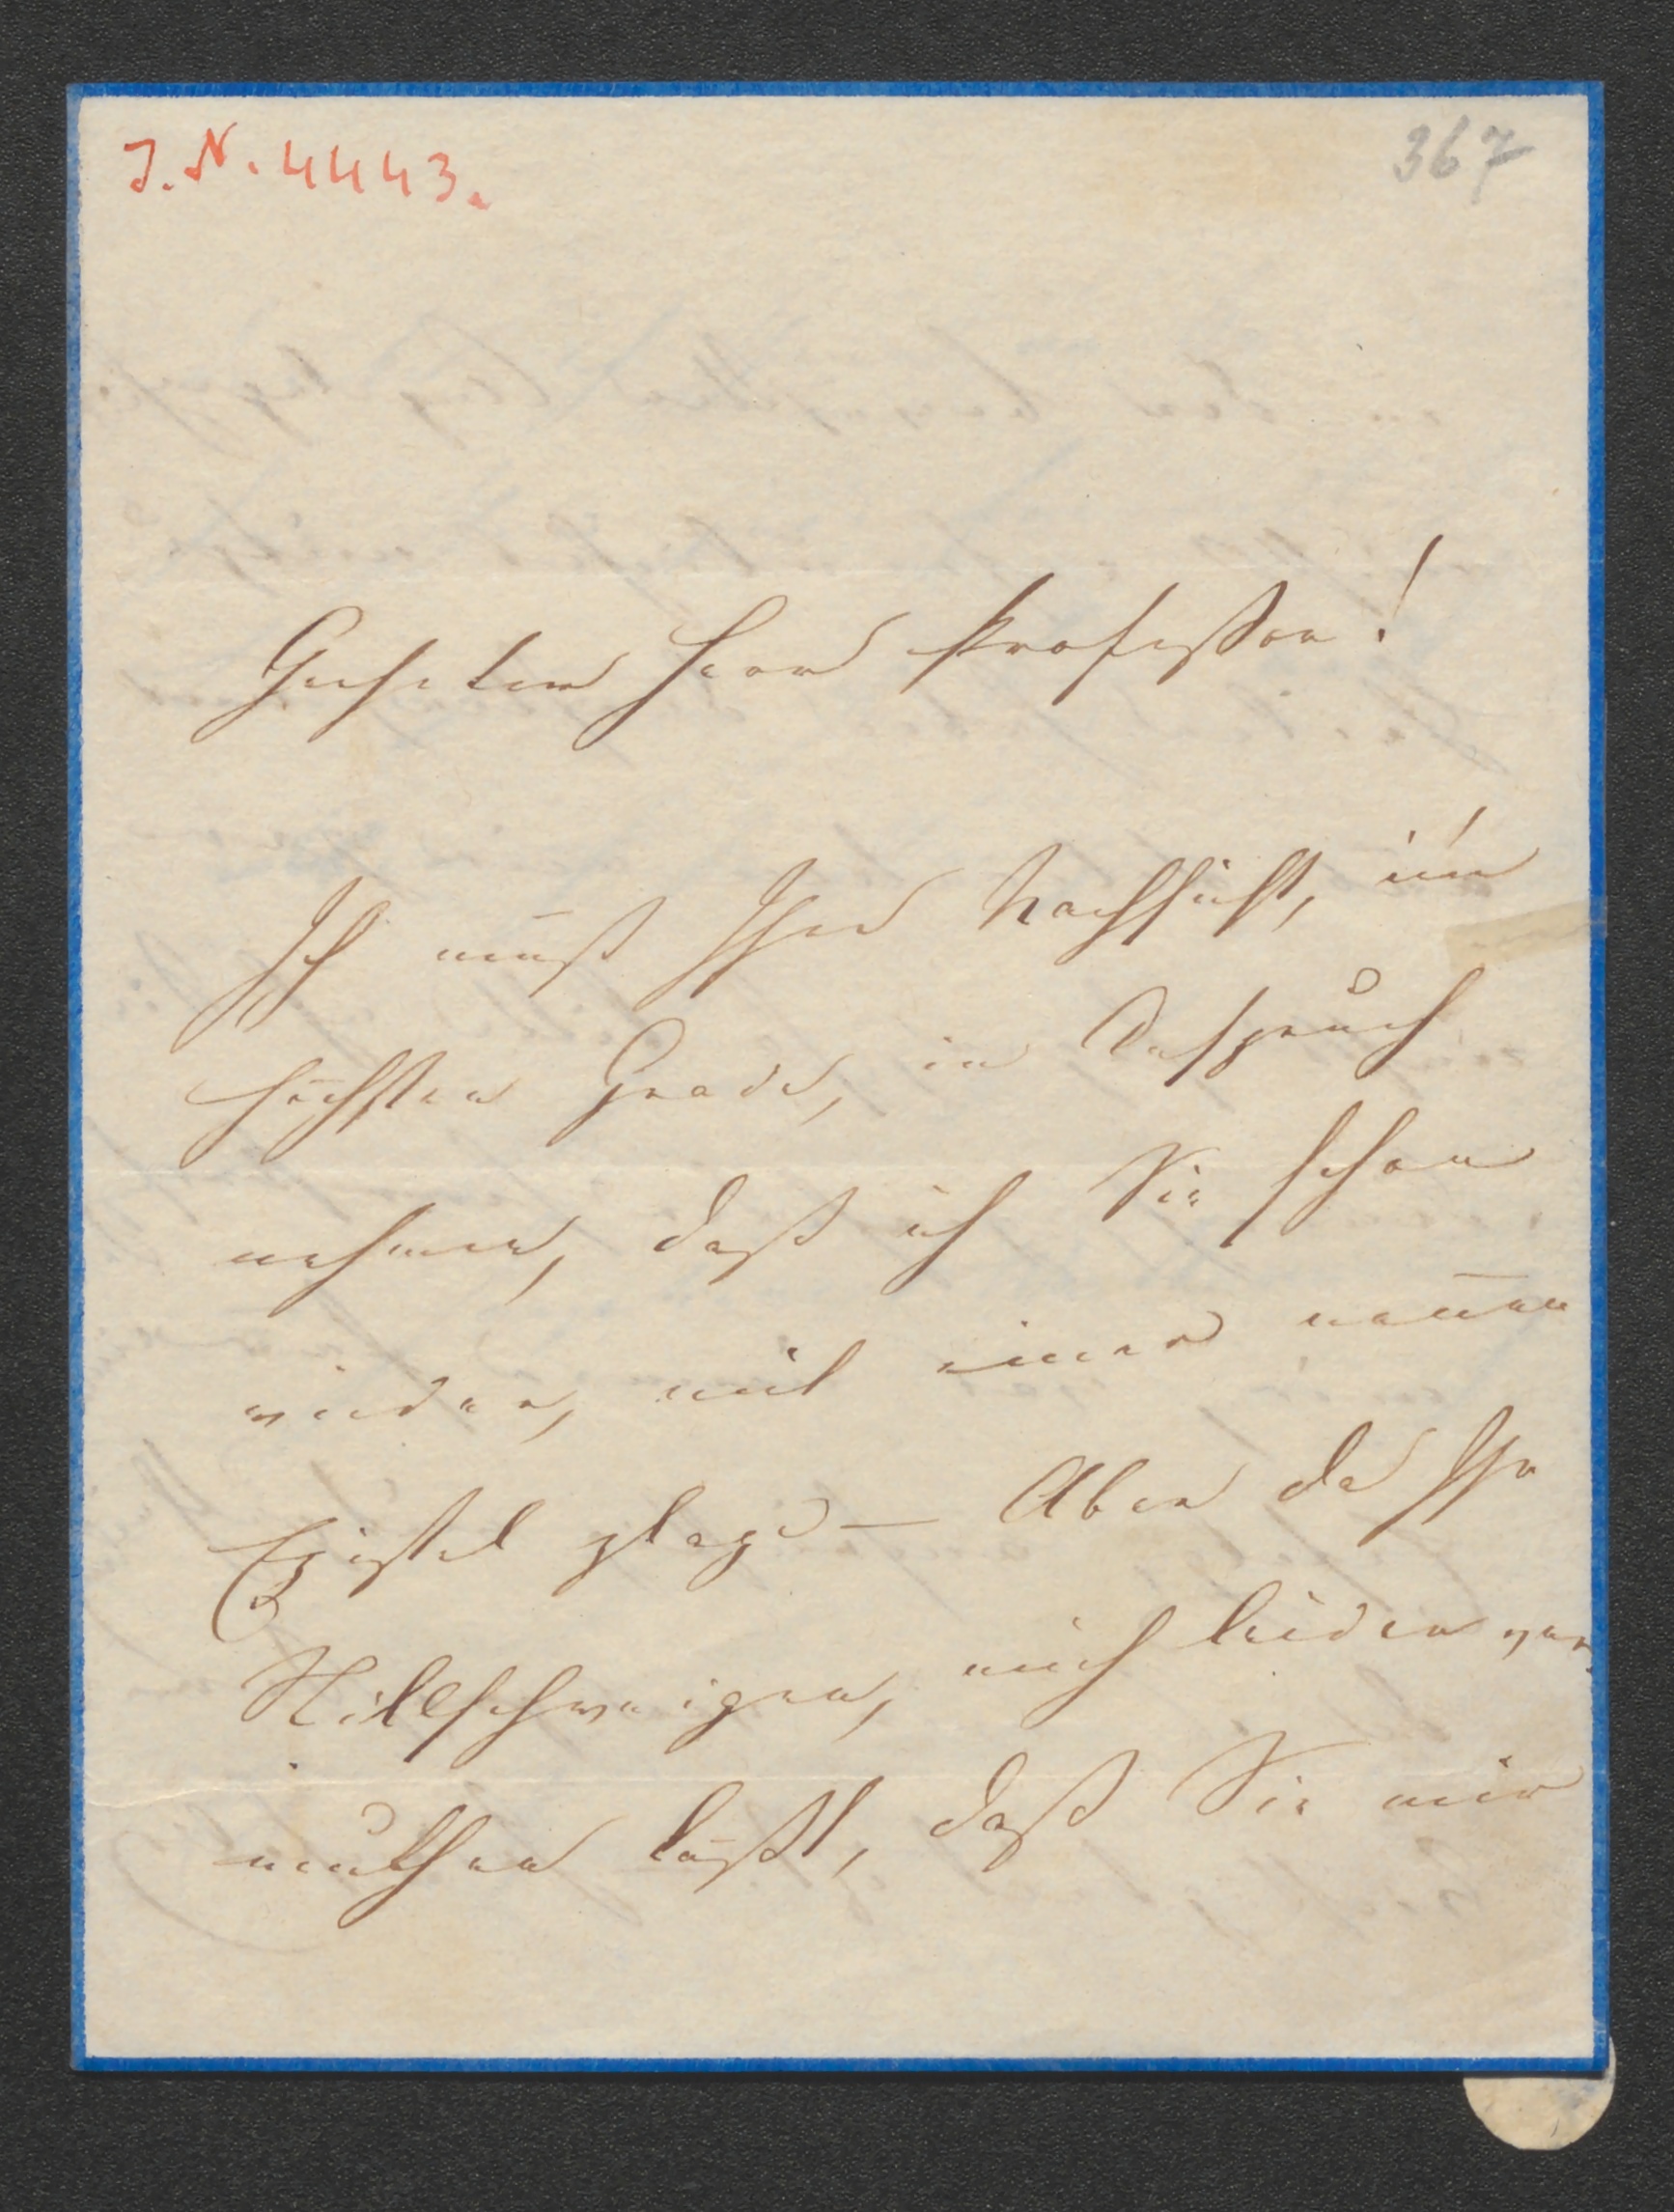 J. N. 4443.
367
Geehrter Herr Professor!
Ich muß Ihre Nachsicht, im
höchsten Grade, in Anspruch
nehmen, daß ich Sie schon
wieder, mit einer neuen
Epistel plage — Aber da Ihr
Stillschweigen, mich leider ver¬
muthen läßt, daß Sie mir